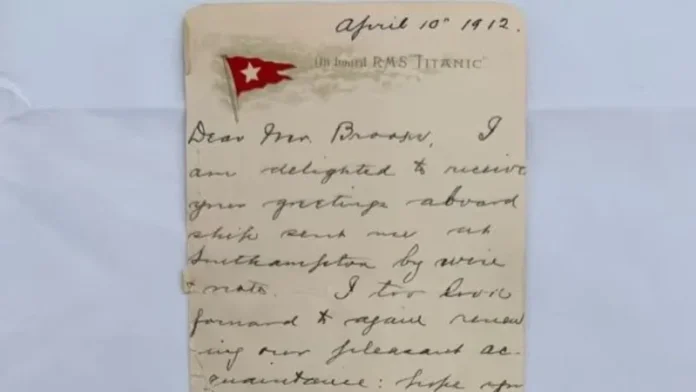 April 10th 1912.
On board R.M.S. "TITANIC"
Dear Mr. Brooks, I
am delighted to receive
your greetings aboard
ship sent me at
Southampton by wire
& note. I too look
forward to again renew
ing our pleasant ac-
quaintance: hope you